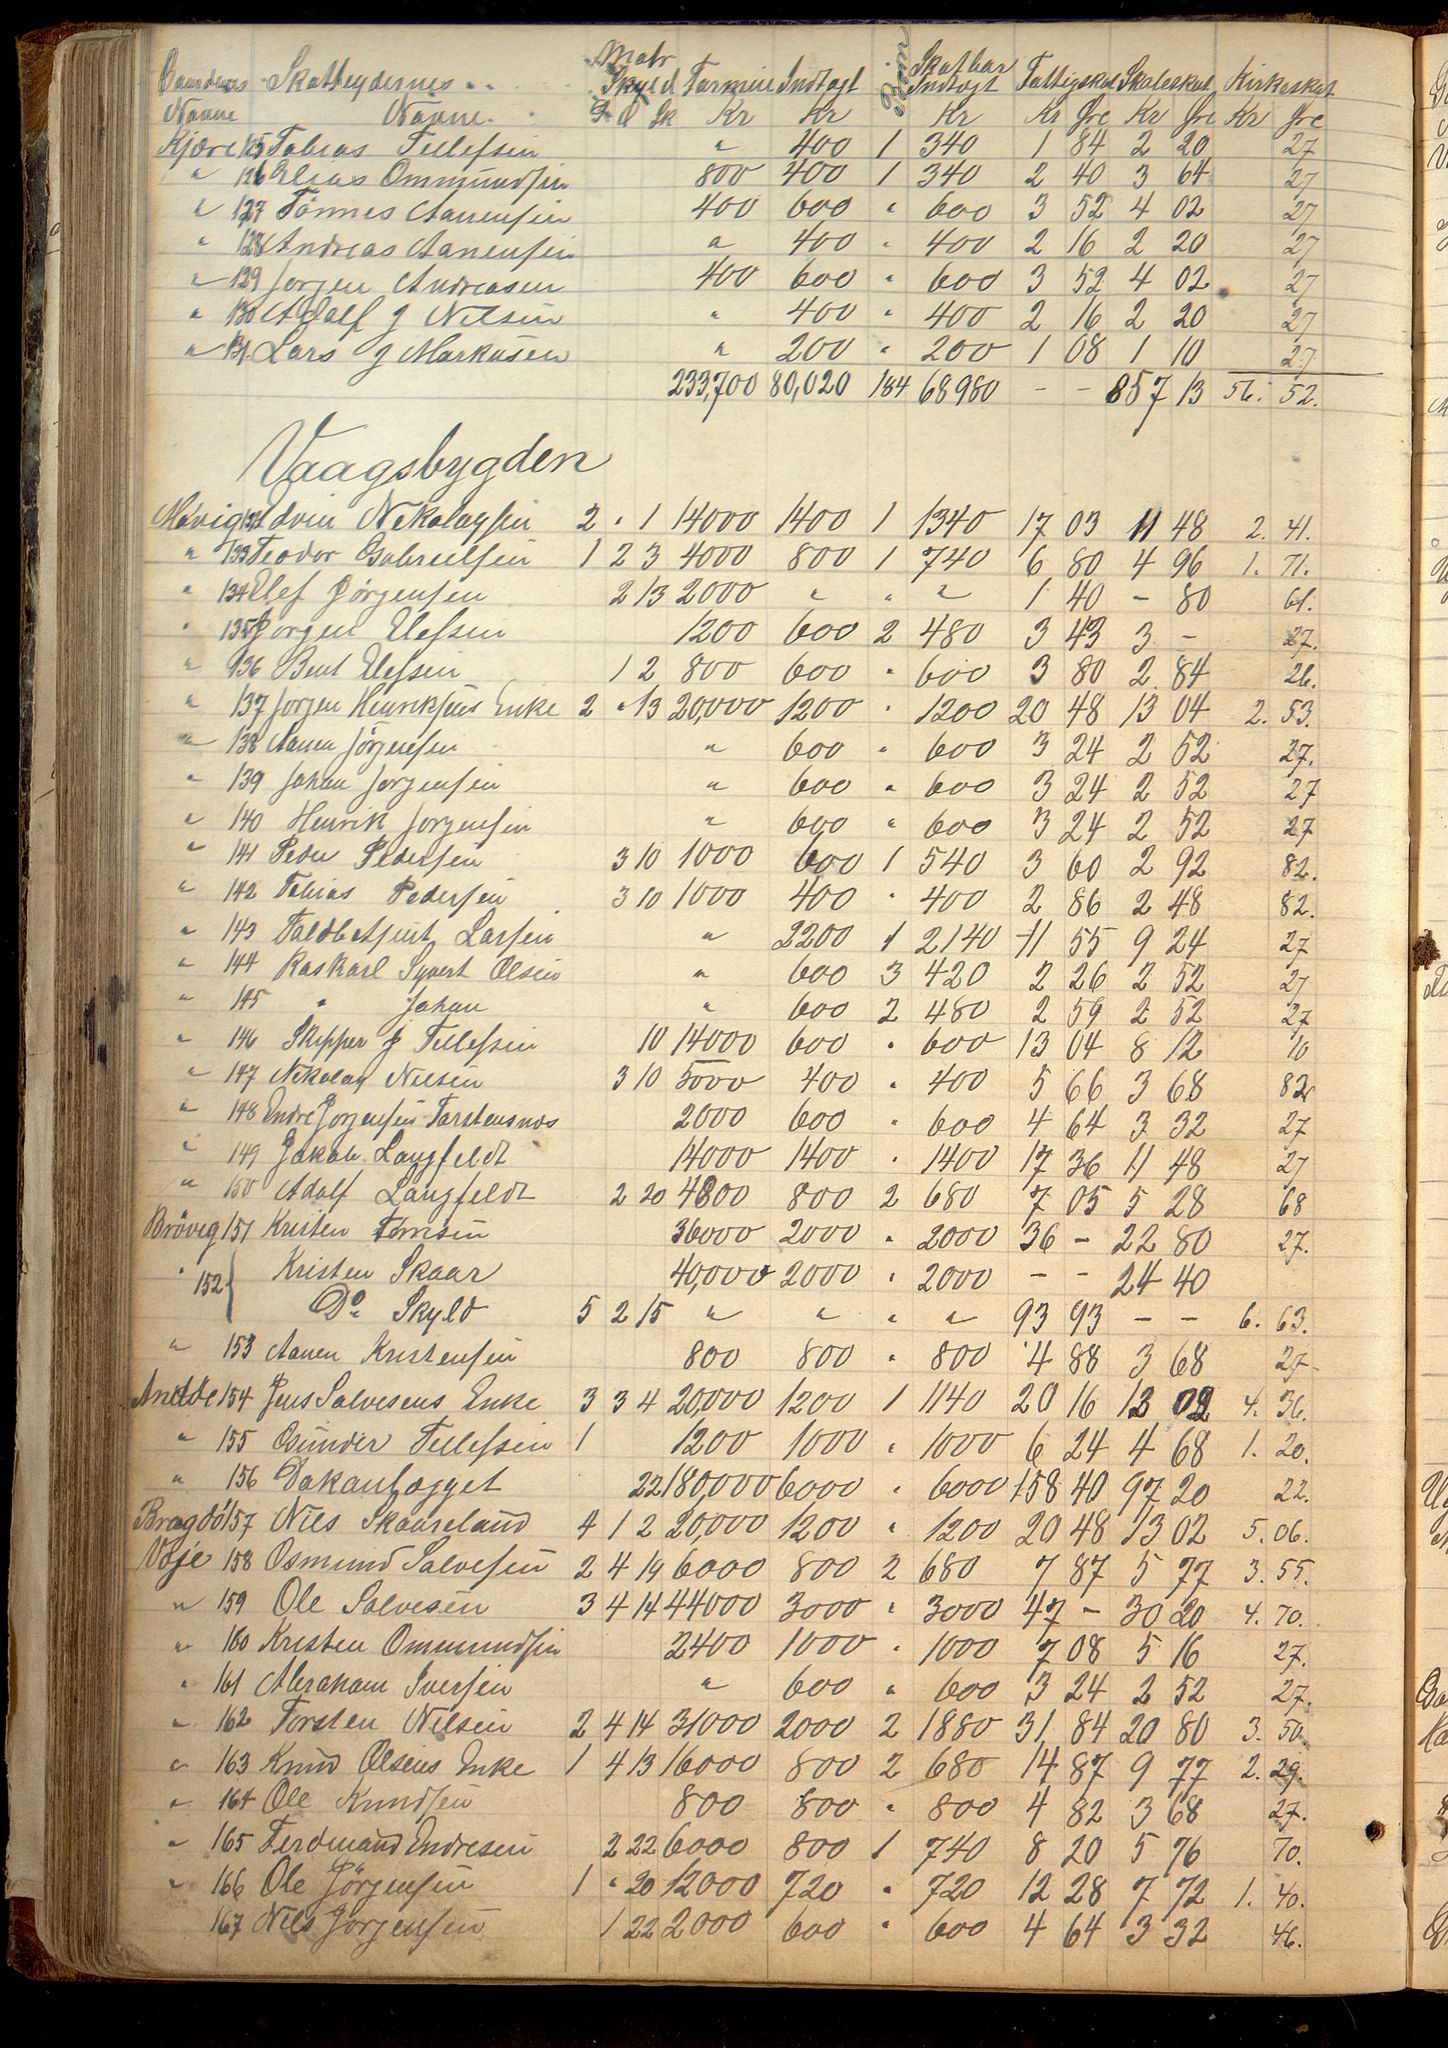 Gaardenes Skatteydernes Matr Skyld Formue Indtægt Skatbar Indtægt Fattigskat Skoleskat Kirkeskat
Navne Navne D O Sk Kr Kr Kr Kr Øre Kr Øre Kr Øre
Kjære 125 Tobias Tellefsen " 400 1 340 1 84 2 20 27
" 126 Elias Ommundsen 800 400 1 340 2 40 3 64 27
" 127 Tönnes Aanensen 400 600 " 600 3 52 4 02 27
" 128 Andreas Aanensen " 400 " 400 2 16 2 20 27
" 129 Jörgen Andreasen 400 600 " 600 3 52 4 02 27
" 130 Adolf J Nilsen " 400 " 400 2 16 2 20 27
" 131 Lars J Markusen " 200 " 200 1 08 1 10 27
233,700 80,020 184 68980 - - 857 13 56. 52.
Vaagsbygden
Movig 132 Edvin Nikolaysen 2 " 1 14000 1400 1 1340 17 03 11 48 2. 41.
" 133 Teodor Gabrielsen 1 2 3 4000 800 1 740 6 80 4 96 1. 71.
" 134 Elef Jörgensen 2 13 2000 " " " 1 40 - 80 61.
" 135 Jörgen Elefsen 1200 600 2 480 3 43 3 - 27.
" 136 Bent Elefsen 1 2 800 600 " 600 3 80 2 84 26.
" 137 Jörgen Henriksens Enke 2 " 13 20,000 1200 " 1200 20 48 13 04 2. 53.
" 138 Aanen Jörgensen " 600 " 600 3 24 2 52 27.
" 139 Johan Jorgensen " 600 " 600 3 24 2 52 27
" 140 Henrik Jorgensen " 600 " 600 3 24 2 52 27
" 141 Peder Pedersen 3 10 1000 600 1 540 3 60 2 92 82.
" 142 Tobias Pedersen 3 10 1000 400 " 400 2 86 2 48 82.
" 143 Toldbetjent Larsen " 2200 1 2140 11 55 9 24 27
" 144 Raskarl Syvert Olsen " 600 3 420 2 26 2 52 27
" 145 " Johan " 600 2 480 2 59 2 52 27
" 146 Skipper J Tellefsen 10 14000 600 " 600 13 04 8 12 10
" 147 Nikolay Nilsen 3 10 5000 400 " 400 5 66 3 68 82
" 148 Endre Jorgensen Torstensnes 2000 600 " 600 4 64 3 32 27
" 149 Jakob Langfeldt 14000 1400 " 1400 17 36 11 48 27
" 150 Adolf Langfeldt 2 20 4800 800 2 680 7 05 5 28 68
Bröveg 151 Kristen Tomesen 36000 2000 " 2000 36 - 22 80 27.
" 152 { Kristen Skaar 40,000 2000 " 2000 - - 24 40
Do Skyld 5 2 15 " " " " 93 93 - - 6. 63.
" 153 Aanen Kristensen 800 800 " 800 4 88 3 68 27
Andöe 154 Jens Salvesens Enke 3 3 4 20,000 1200 1 1140 20 16 13 02 4. 36.
" 155 Gunder Tellefsen 1 1200 1000 " 1000 6 24 4 68 1. 20.
" 156 22 180,000 6000 " 6000 158 40 97 20 22.
Bragdö 157 Nils Skaareland 4 1 2 20,000 1200 " 1200 20 48 13 02 5. 06.
Voje 158 Osmund Salvesen 2 4 19 6000 800 2 680 7 87 5 77 3. 55.
" 159 Ole Salvesen 3 4 14 44000 3000 " 3000 47 - 30 20 4. 70.
" 160 Kristen Ommundsen 2400 1000 " 1000 7 08 5 16 27.
" 161 Abraham Iversen " 600 " 600 3 24 2 52 27.
" 162 Torsten Nilsen 2 4 14 31000 2000 2 1880 31 84 20 80 3. 50.
" 163 Knud Olsens Enke 1 4 13 16000 800 2 680 14 87 9 77 2. 29.
" 164 Ole Knudsen 800 800 " 800 4 82 3 68 27.
" 165 Ferdinand Endresen 2 22 6000 800 1 740 8 20 5 76 70.
" 166 Ole Jörgensen 1 " 20 12000 720 " 720 12 28 7 72 1. 40.
167 Nils Jörgensen 1 22 2000 600 " 600 4 64 3 32 46.